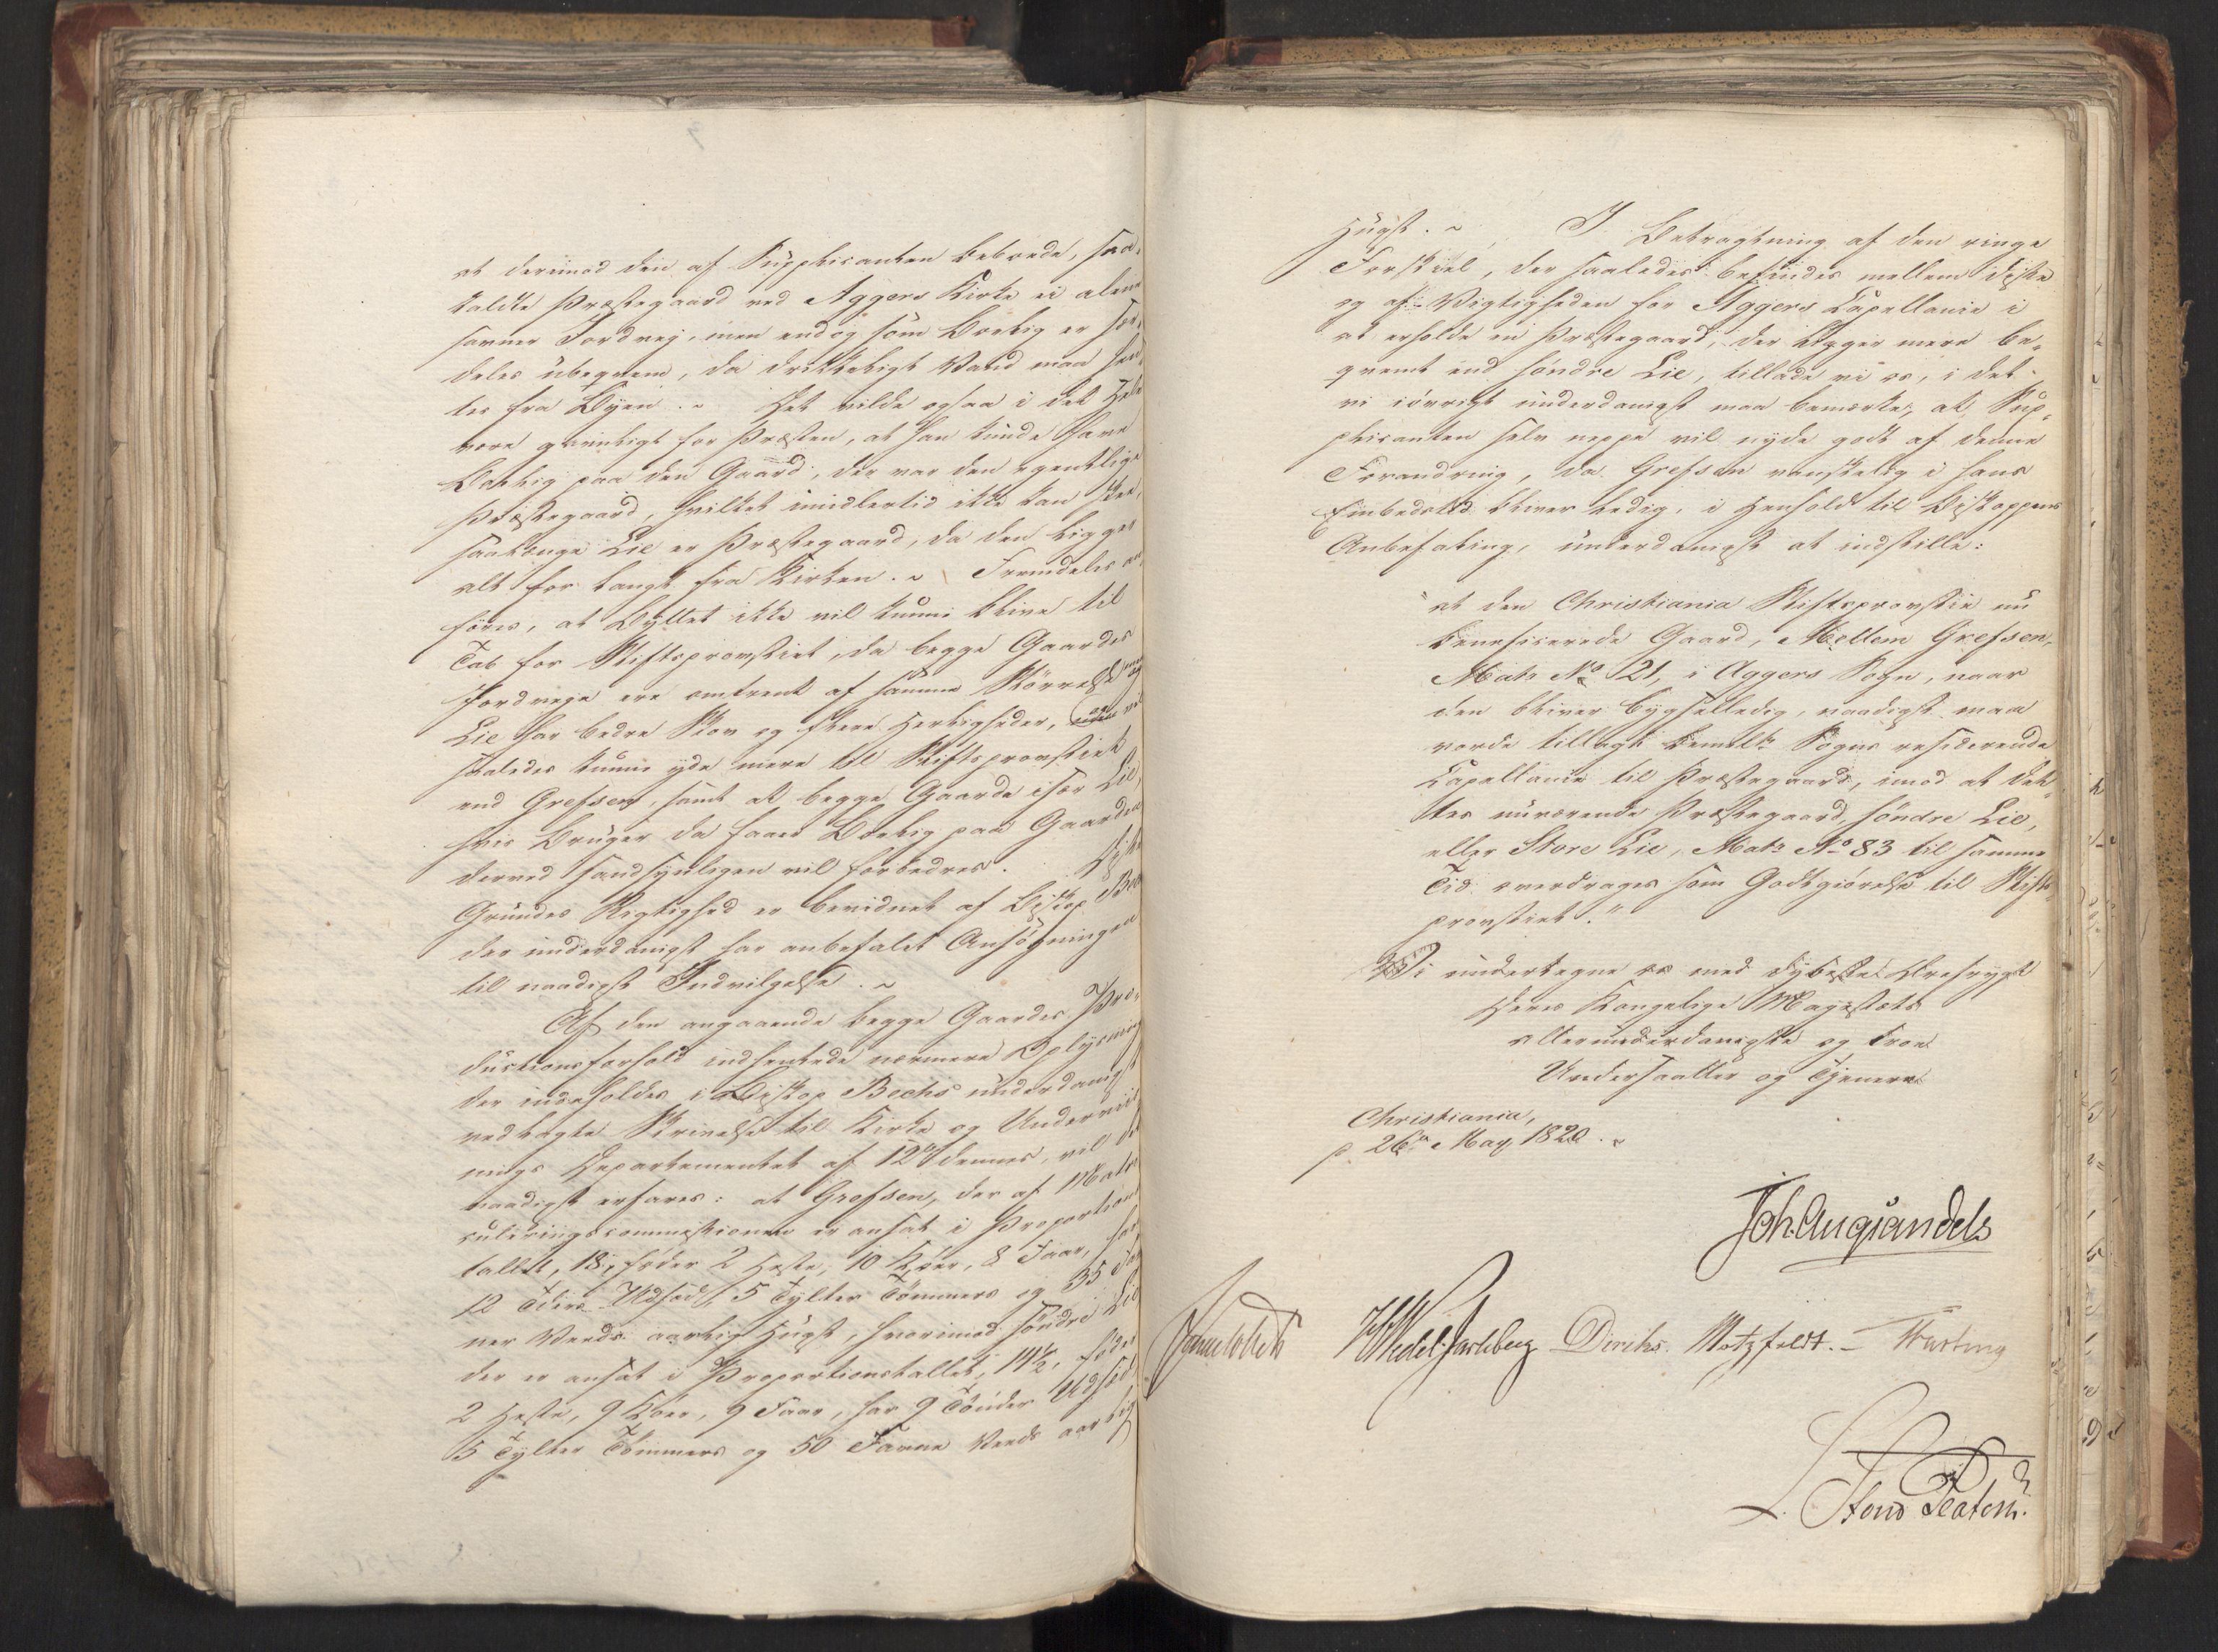 at derimod den af Supplicanten beboede, saa-
kaldte Præstegaard ved Aggers Kirke ei alene
savner Jordvej, men endog som Boelig er sær-
deles ubeqvem, da drikkeligt Vand maa hen-
tes fra Byen. Det vilde ogsaa i det Hele
være gavnligt for Præsten, at han kunde have
Boelig paa den Gaard, der var den egentlige
Præstegaard, hvilket imidlertid ikke kan skee,
saalænge Lie er Præstegaard, da den ligger
alt for langt fra Kirken. Fremdeles
føres, at Byttet ikke vil kunne blive til
Tab for Stiftsprovstiet, da begge Gaardes
Jordveje ere omtrent af samme Størrelse
Lie har bedre Skov og flere Herligheder, og
saaledes kunne yde mere til Stiftsprovstiet
end Grefsen, samt at begge Gaarde især Lie,
hvis Bruger da faaer Boelig paa Gaarden
derved sandsynligen vil forbedres. Disse
Grundes Rigtighed er bevidnet af Biskop Bech
der underdanigst har anbefalet Ansøgningen
til naadigst Indvilgelse.
Af den angaaende begge Gaardes Pro-
ductionsforhold indhentede nærmere Oplysning
der indeholdes i Biskop Bechs underdanigst
vedlagte Skrivelse til Kirke og Underviis-
nings Departementet af 12te dennes, vil det
naadigst erfares: at Grefsen, der af Matri-
culeringscommissionen er ansat i Proportions-
tallet, 18, føder 2 Heste, 10 Køer, 8 Faar, har
12 Tdrs Udsæd, 5 Tylter Tømmers og 35 Fav-
ner Veeds aarlig Hugst, hvorimod søndre Lie
der er ansat i Proportionstallet, 14½, føder
2 Heste, 9 Køer, 9 Faar, har 9 Tønder Udsæd
5 Tylter Tømmers og 50 Favne Veeds aarlig
Hugst. I Betragtning af den ringe
Forskiel, der saaledes befindes mellem disse
og af Vigtigheden for Aggers Capellanie i
at erholde en Præstegaard, der ligger mere be-
qvemt end søndre Lie, tillade vi os, i det
vi iøvrigt underdanigst maa bemærke, at Sup-
plicanten selv neppe vil nyde godt af denne
Forandring, da Grefsen vanskelig i hans
Embedstid bliver ledig, i Henhold til Biskoppens
Anbefaling, underdanigst at indstille:
"at den Christiania Stiftsprovstie nu
beneficerede Gaard, Mellem Grefsen,
Matr No 21, i Aggers Sogn, naar
den bliver bygselledig, naadigst maa
vorde tillagt bemeldte Sogns residerende
Capellanie til Præstegaard, imod at det-
tes nuværende Præstegaard, søndre Lie,
eller Store Lie, Matr No 83 til samme
Tid overdrages som Godtgiørelse til Stifts-
provstiet."
Vi undertegne os med dybeste Ærefrygt
Deres Kongelige Majestæts
allerunderdanigste og troe
Undersaatter og Tjenere
Christiania,
p. 26de May, 1820.
Joh. Aug. Sandels
Sommerhielm HWedel Jarlsberg Diriks. Motzfeldt. Fasting
L. Stoud Platou.